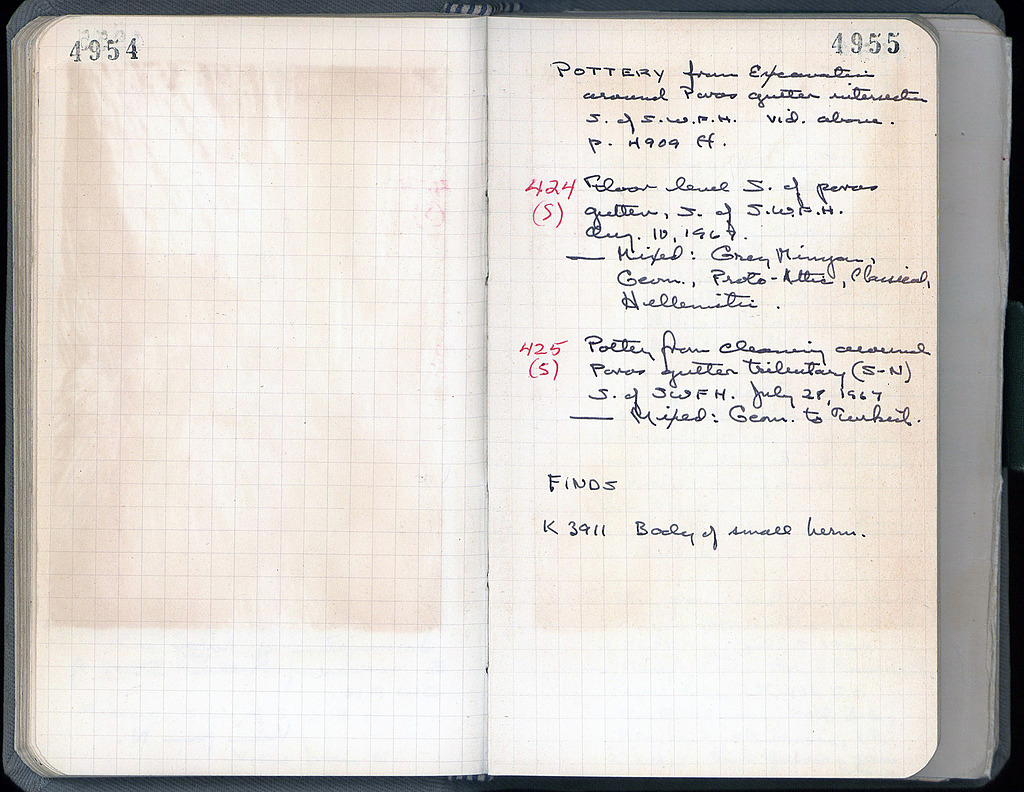 4954
4955
POTTERY from Excavation
around Poros gutter intersection
S. of S.W.F.H. vid. above.
p. 4909 ff.
424 Floor level S. of poros
(S) gutter, S. of S.W.F.H.
Aug. 10, 1967.
— Mixed: Grey Minyan,
Geom., Proto-Attic, Classical,
Hellenistic.
425 Pottery from cleaning around
(S) Poros gutter tributary (S-N)
S. of SWFH. July 28, 1967
— Mixed: Geom. to Turkish.
FINDS
K 3911 Body of small herm.